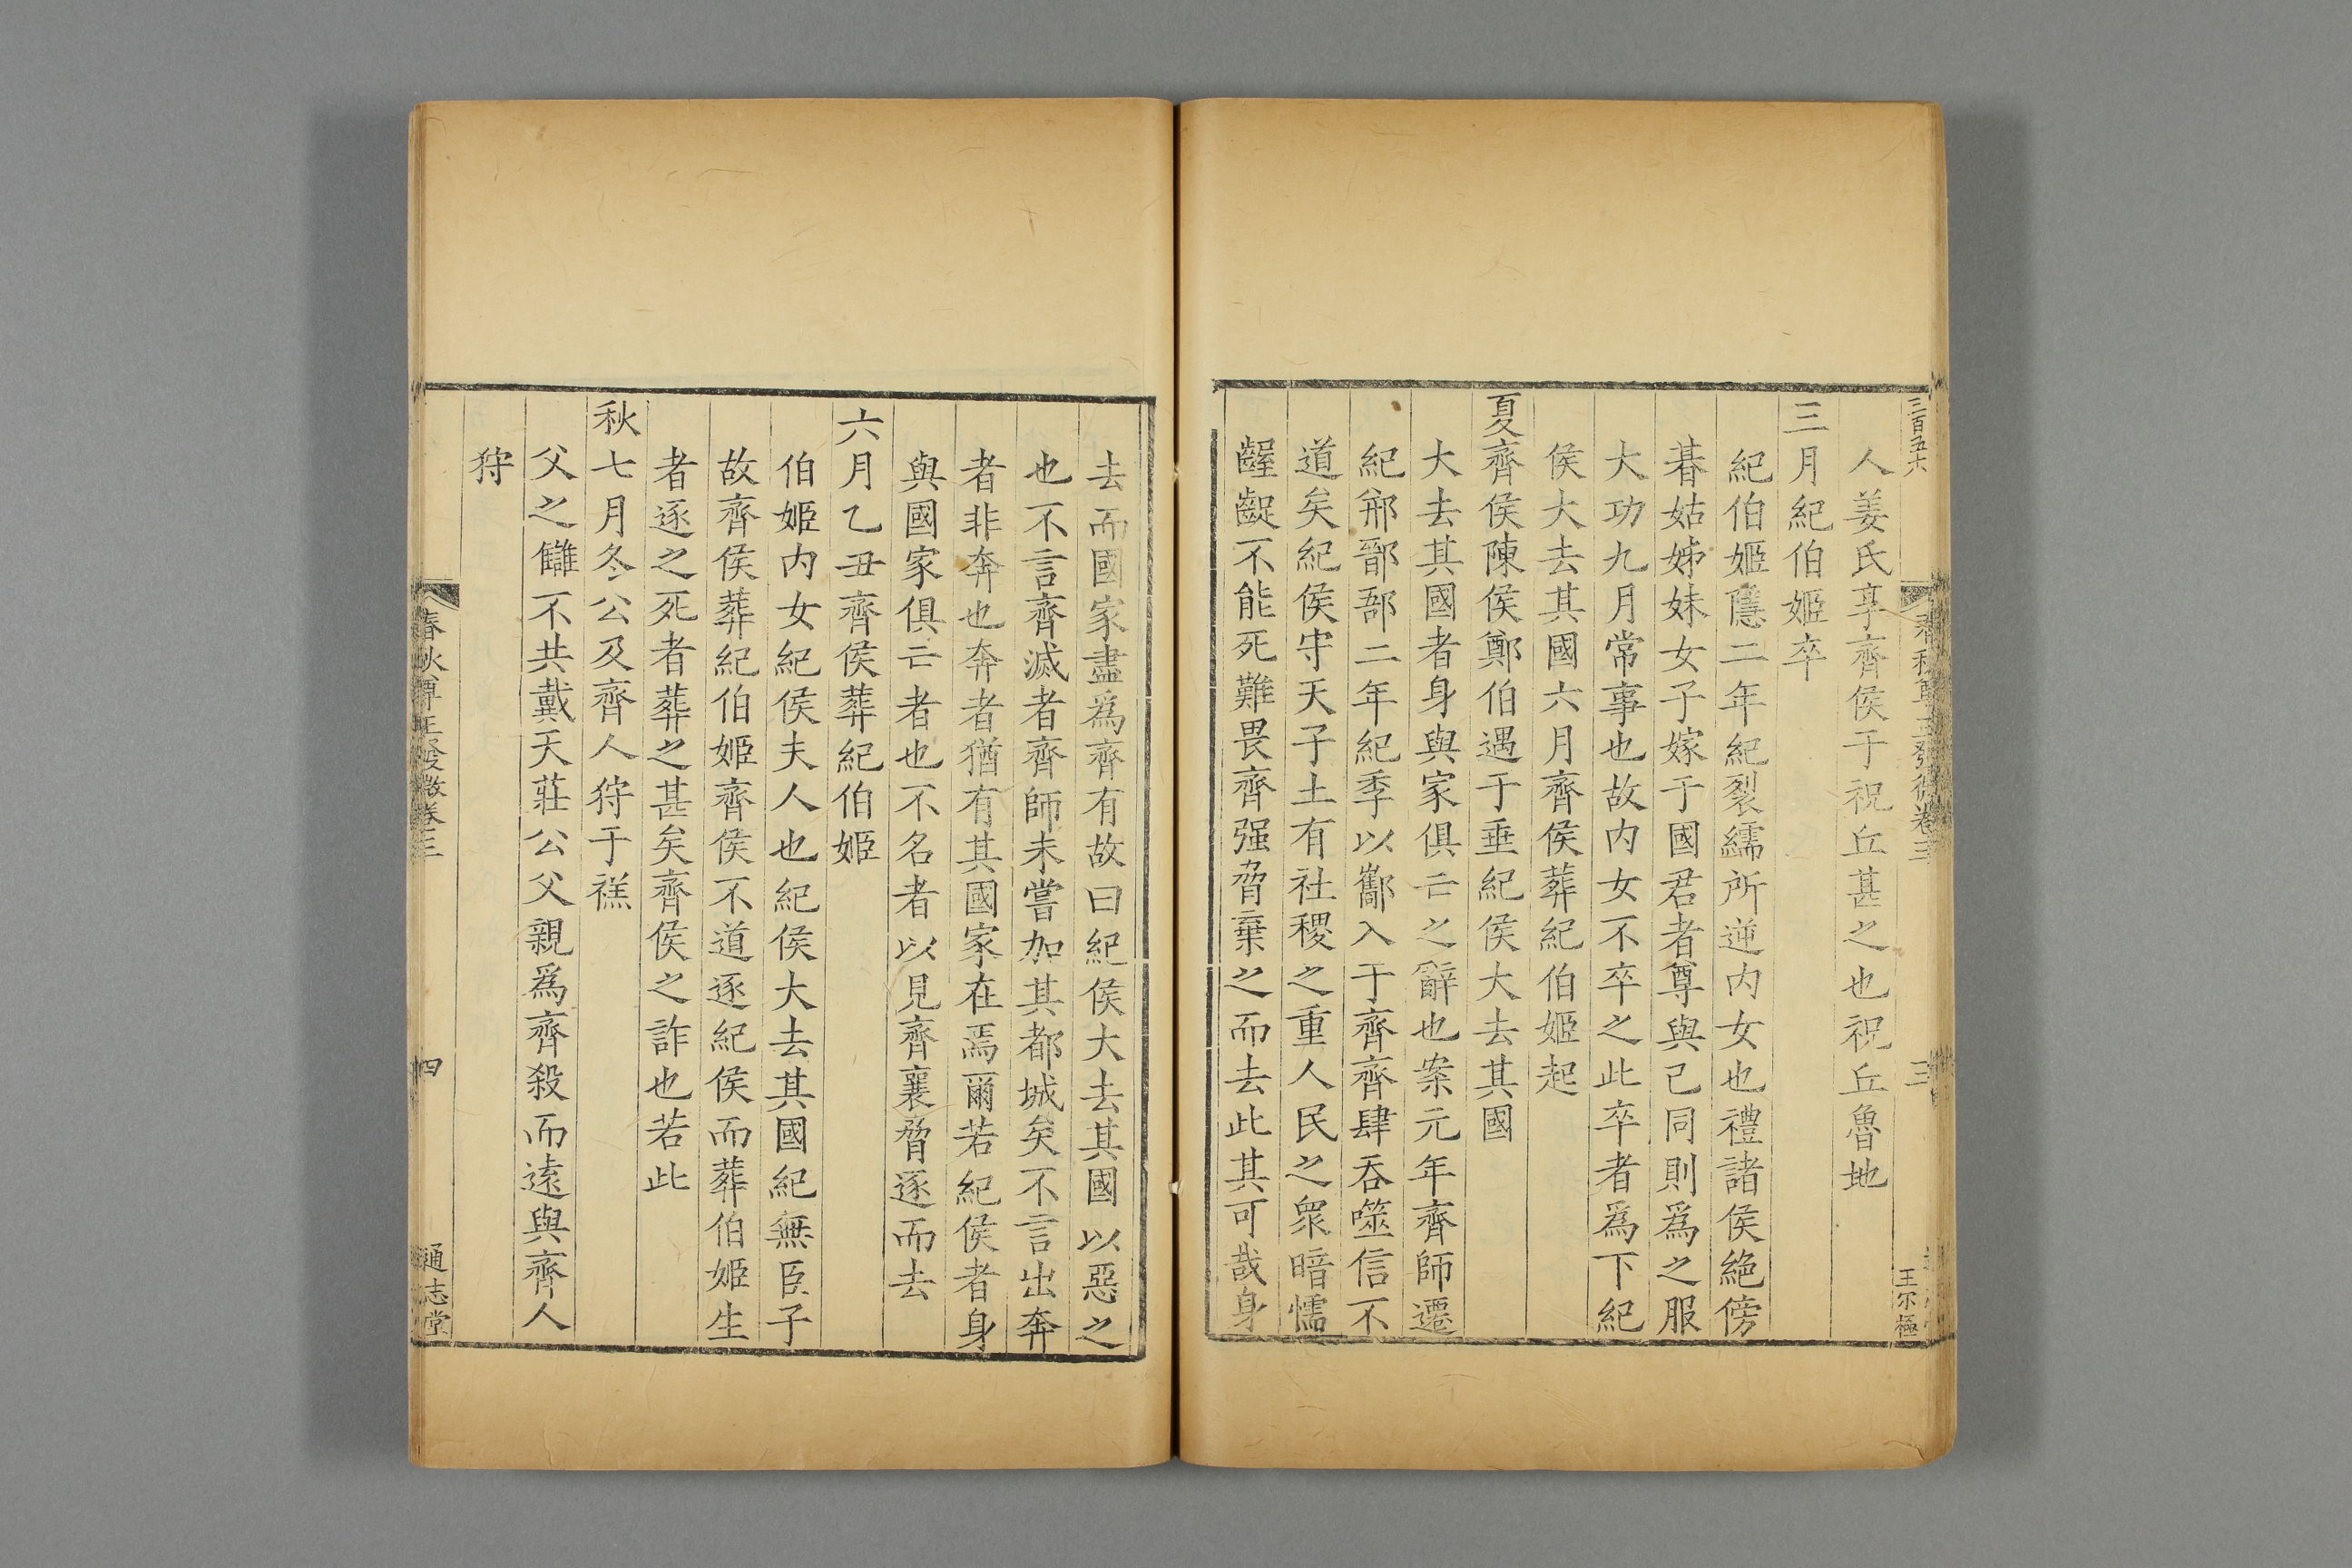 三百五六
春秋尊王發微卷三
三
王尔極
人姜氏享齊侯于祝丘甚之也祝丘魯地
三月紀伯姬卒
紀伯姬隱二年紀裂繻所逆内女也禮諸侯絶傍
朞姑姊妹女子嫁于國君者尊與己同則爲之服
大功九月常事也故内女不卒之此卒者爲下紀
侯大去其國六月齊侯葬紀伯姬起
夏齊侯陳侯鄭伯遇于垂紀侯大去其國
大去其國者身與家俱亡之辭也案元年齊師遷
紀郱鄑郚二年紀季以酅入于齊齊肆吞噬信不
道矣紀侯守天子土有社稷之重人民之衆暗懦
齷齪不能死難畏齊强脅棄之而去此其可哉身
去而國家盡爲齊有故曰紀侯大去其國以惡之
也不言齊滅者齊師未嘗加其都城矣不言出奔
者非奔也奔者猶有其國家在焉爾若紀侯者身
與國家俱亡者也不名者以見齊襄脅逐而去
六月乙丑齊侯葬紀伯姬
伯姬内女紀侯夫人也紀侯大去其國紀無臣子
故齊侯葬紀伯姬齊侯不道逐紀侯而葬伯姬生
者逐之死者葬之甚矣齊侯之詐也若此
秋七月冬公及齊人狩于禚
父之讎不共戴天莊公父親爲齊殺而遠與齊人
狩
春秋尊王發微卷三
四
通志堂